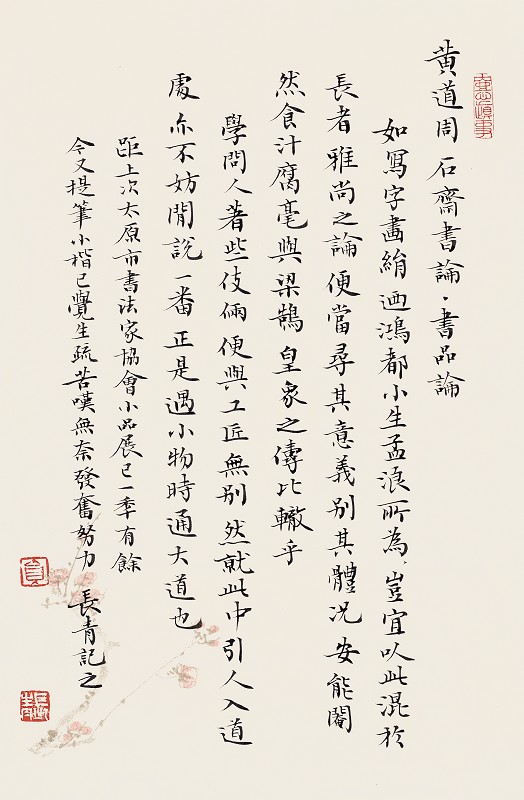 黄道周石齋書論·書品論
如寫字畫絹迺鴻都小生孟浪所為豈宜以此混於
長者雅尚之論便當尋其意義別其體況安能闇
然食汁腐毫與梁鵠皇象之儔比轍乎
學問人著些伎倆便與工匠無別然就此中引人入道
處亦不妨閒說一番正是遇小物時通大道也
距上次太原市書法家協會小品展已一季有餘
今又提筆小楷已覺生疏苦嘆無奈發奮努力 長青記之